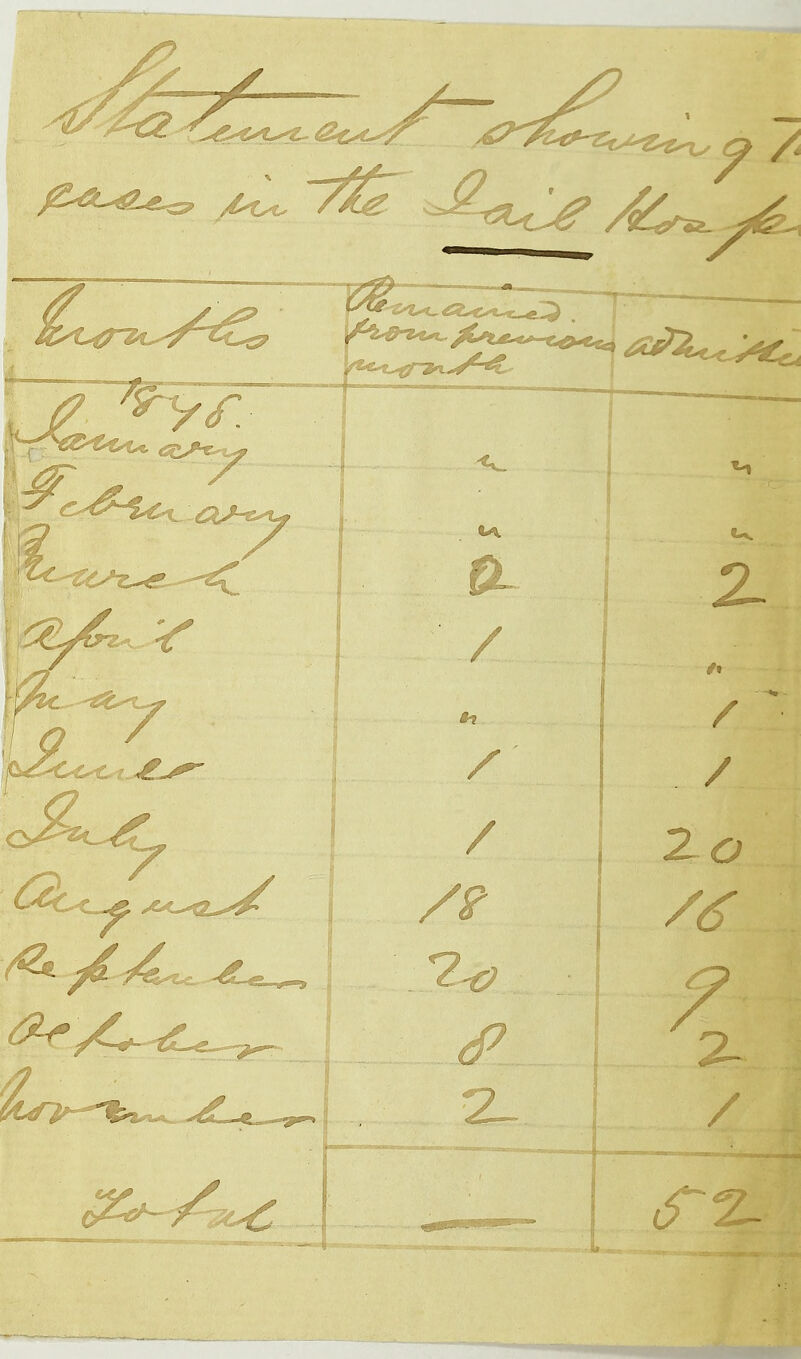 Statement showing
cases in the Jail Hosp
Months Remained from previous month admitte
1878.
January " "
February " "
March 2 2
April 1 "
May " 1
June 1 1
July 1 20
August 18 16
September 20 9
October 8 2
November 2 1
Total — 52